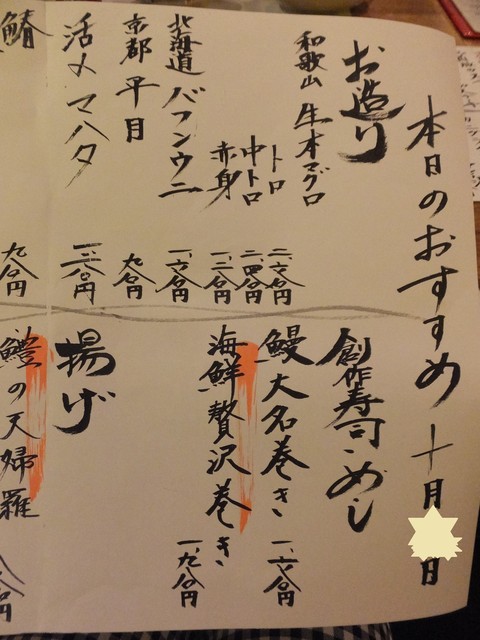 本日のおすすめ 十月 日
お造り
和歌山 生本マグロ
トロ 二、六八〇円
中トロ 二、四八〇円
赤身 一、二八〇円
北海道 バフンウニ 一、六八〇円
京都 平目 九八〇円
活〆マハタ
鰆 九八〇円
創作寿司・めし
鰻大名巻き 一、六八〇円
海鮮贅沢巻き 一、九八〇円
揚げ
鱧の天婦羅